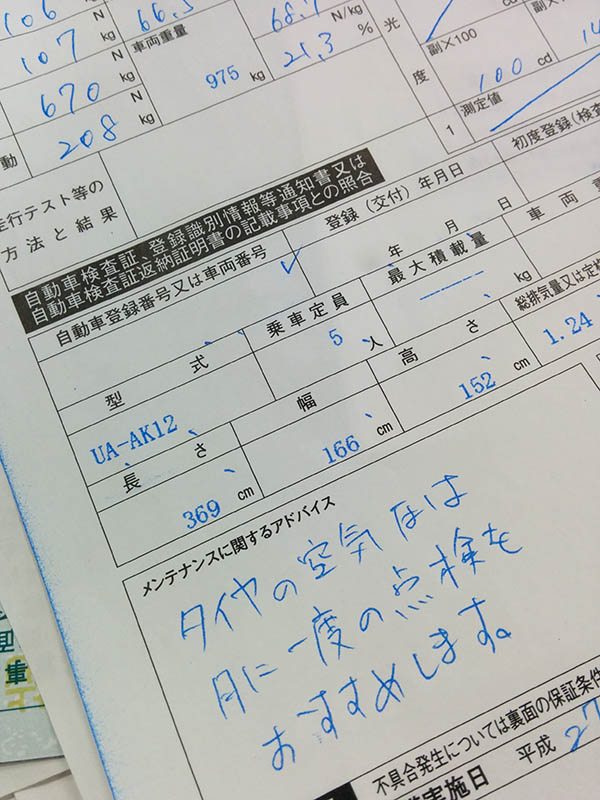 106 N 66.5 68.7 N/kg
107 N 車両重量 21.3 %
670 N 975 kg
動 208 kg
光度
副×100 cd 副×100
100 cd
測定値
1
走行テスト等の
方法と結果
初度登録(検査
自動車検査証、登録識別情報等通知書又は
自動車検査証返納証明書の記載事項との照合
自動車登録番号又は車両番号
登録(交付)年月日
年 月 日
型式
乗車定員
5 人
最大積載量
kg
総排気量又は定格
1.24
UA-AK12
長さ
369 cm
幅
166 cm
高さ
152 cm
メンテナンスに関するアドバイス
タイヤの空気圧は
月に一度の点検を
おすすめします。
不具合発生については裏面の保証条件
実施日 平成 27